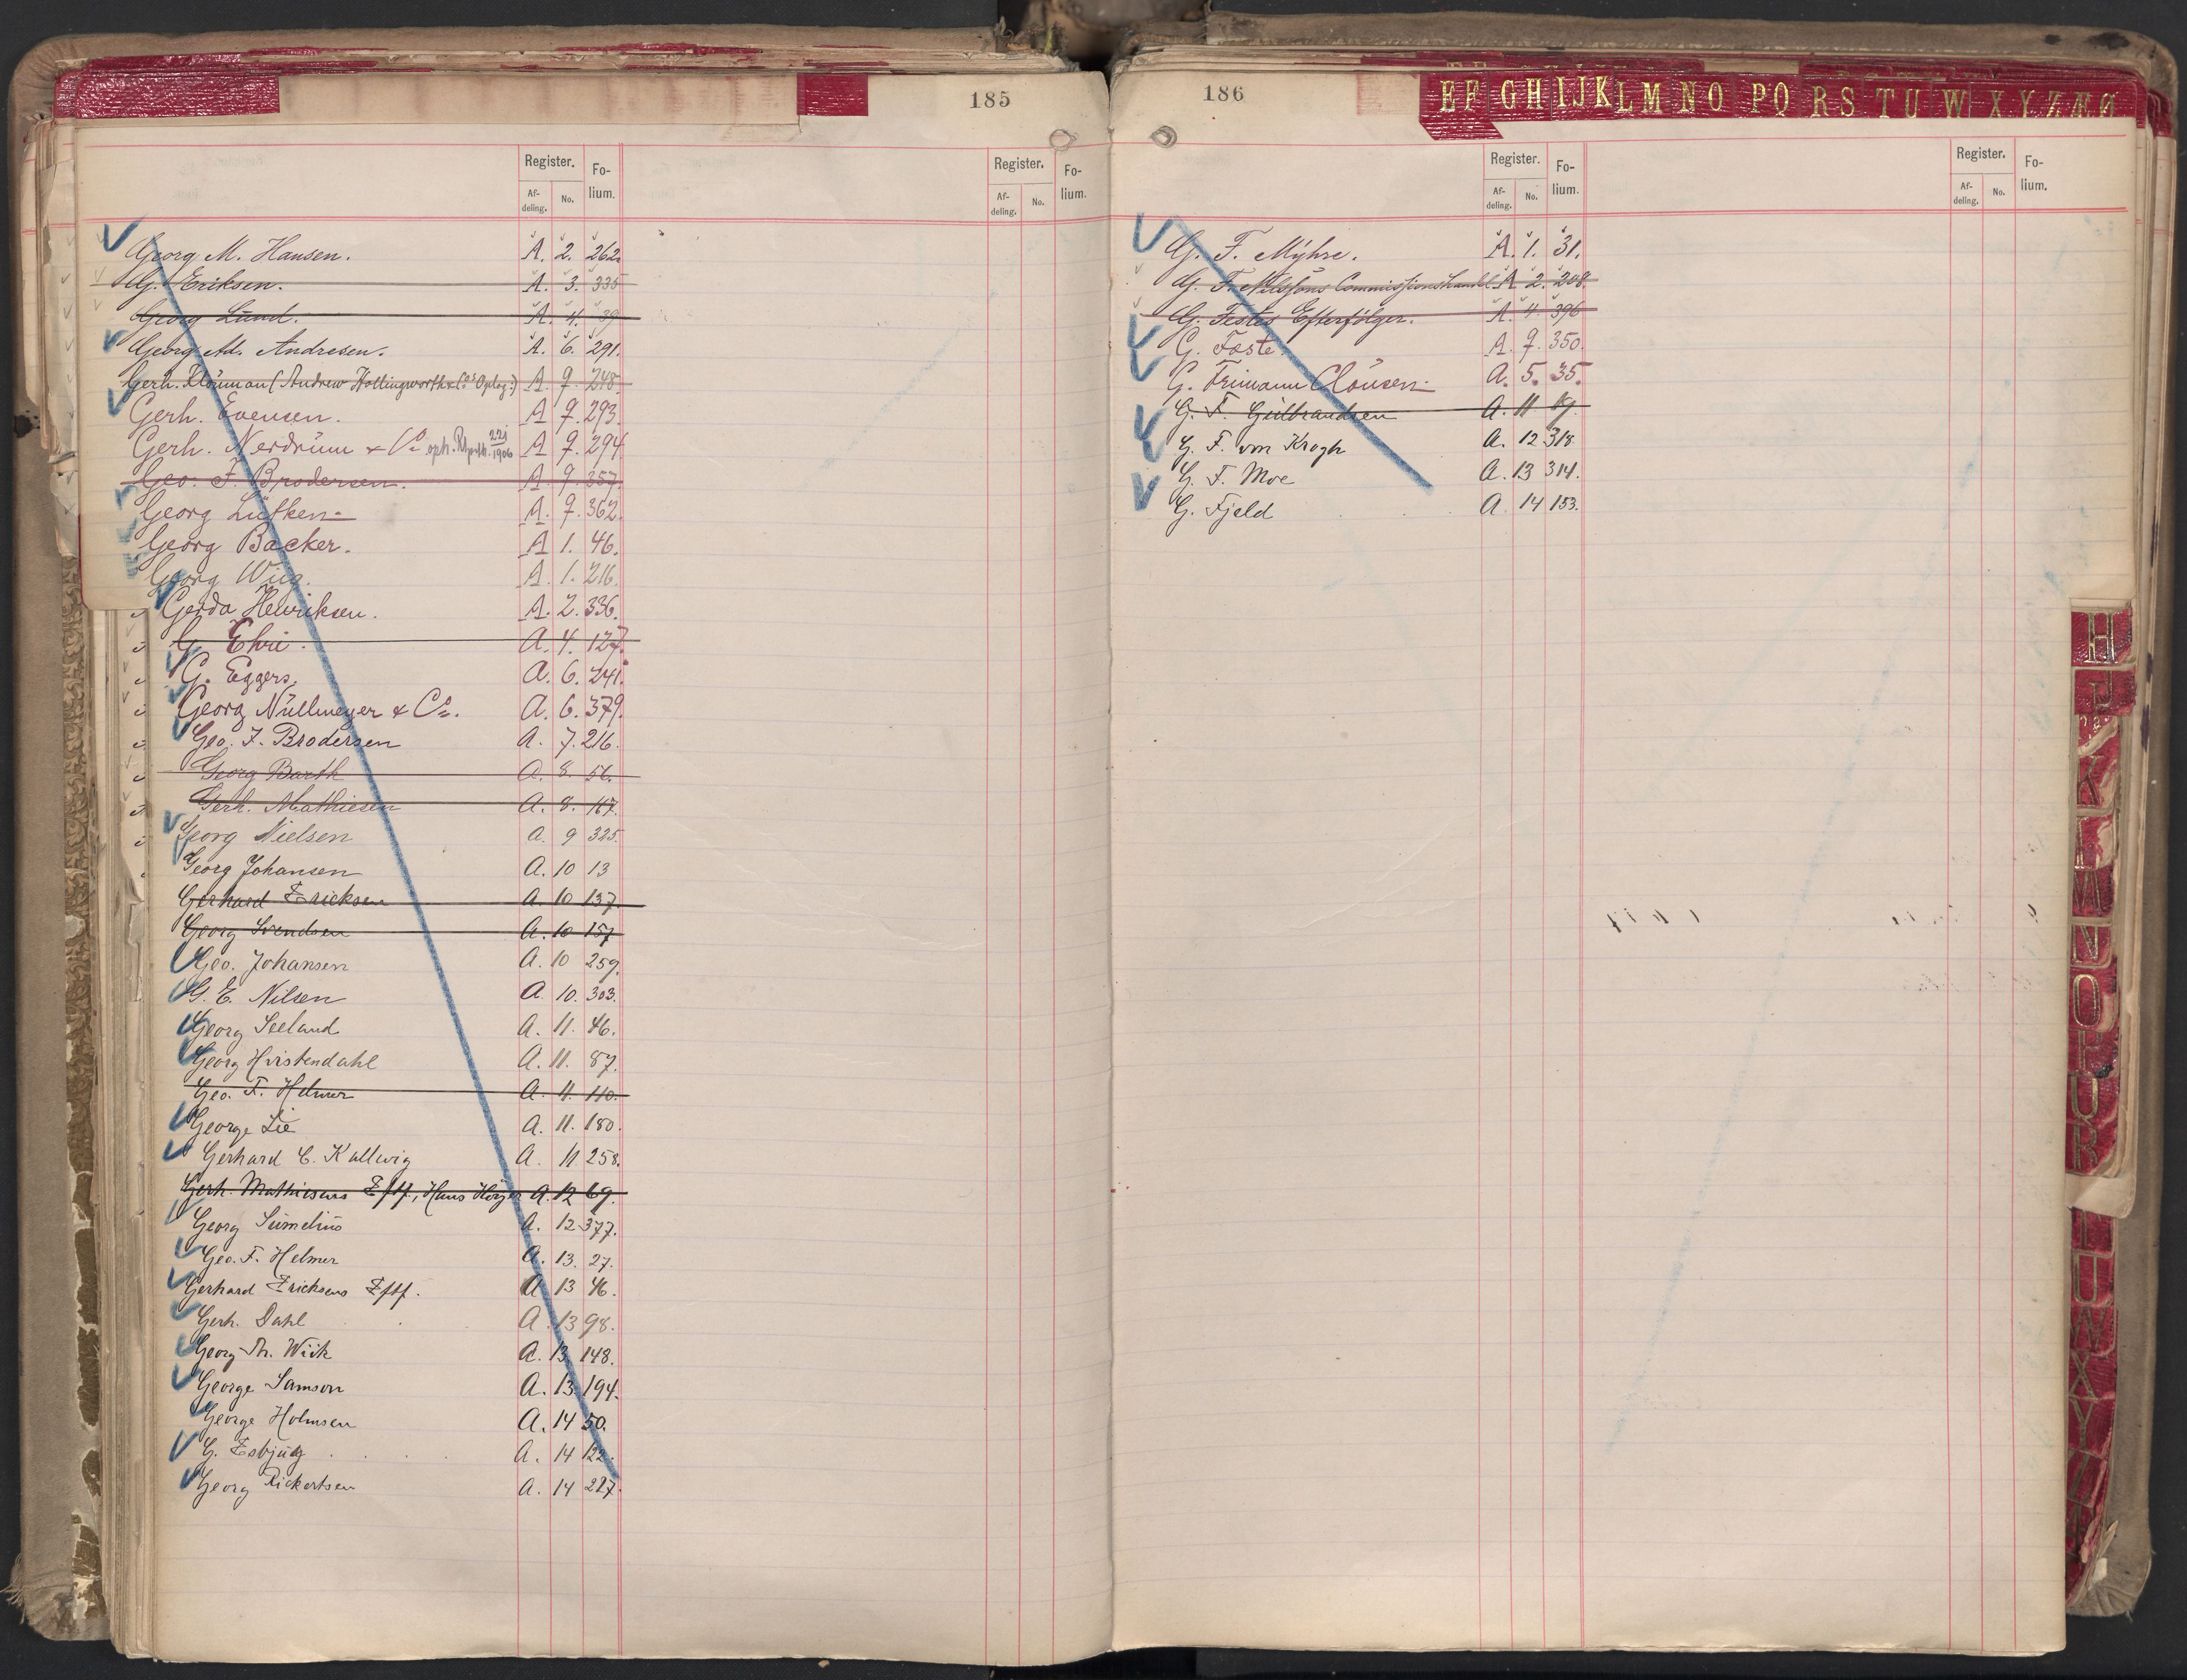 185
Register. Fo-
lium.
Af-
deling. No.
Register. Fo-
lium.
Af-
deling. No.
Georg M. Hansen. A. 2. 262.
G. Eriksen. A. 3. 335
Georg Lund. A. 4. 39
Georg Ad. Andresen. A. 6. 291.
Gerh. Kloüman (Andrew Hollingworth & Co's Oplag:) A 7. 248.
Gerh. Evensen. A 7. 293.
Gerh. Nerdrüm & Co oph. 22/1 1906 A 7. 294.
Geo. F. Brodersen. A. 7. 357.
Georg Lütken A. 7. 362.
Georg Backer. A 1. 46.
Georg Wiig. A. 1. 216.
Gerda Henriksen. A. 2. 336.
G. Ehri. A. 4. 127.
G. Eggers. A. 6. 241.
Georg Nüllmeyer & Co. A. 6. 379.
Geo. F. Brodersen A. 7. 216.
Georg Barth A. 8. 56.
Gerh. Mathiesen A. 8. 167.
Georg Nielsen A. 9 325.
Georg Johansen A. 10 13
Gerhard Ericksen A. 10 137.
Georg Svendsen A. 10 157
Geo. Johansen A. 10 259.
G. E. Nilsen A. 10. 303.
Georg Seeland A. 11. 46.
Georg Hvistendahl A. 11. 87.
Geo. F. Helmer A. 11. 110.
George Lie A. 11. 180.
Gerhard C. Kallevig A. 11 258.
Gerh. Mathiesens Eftf., Hans Höyer A. 12 69.
Georg Sümelius A. 12 377.
Geo. F. Helmer A. 13. 27.
Gerhard Ericksens Eftf. A 13 46.
Gerh. Dahl A. 13 98.
Georg Th. Wiik A. 13. 148.
George Samson A. 13. 194.
George Holmsen A. 14 50.
G. Esbjug A. 14 122.
Georg Rickertsen A. 14 227.
186
EF GH IJ KL MN O PQ RS TU W X Y Z Æ Ø
Register. Fo-
lium.
Af-
deling. No.
Register. Fo-
lium.
Af-
deling. No.
G. F. Mÿhre. A. 1. 31.
G. F. Nilssons Commissionshandel A 2. 208.
G. Festes Efterfölger. A 4 396
G. Faste. A. 7. 350.
G. Frimann Claüsen A. 5. 35.
G. F. Gülbrandsen A. 11 19.
G. F. von Krogh A. 12 318.
G. F. Moe A. 13 314.
G. Fjeld A 14 153.
H
J
K
L
M
N
O
P
R
U
W
X
Y
Z